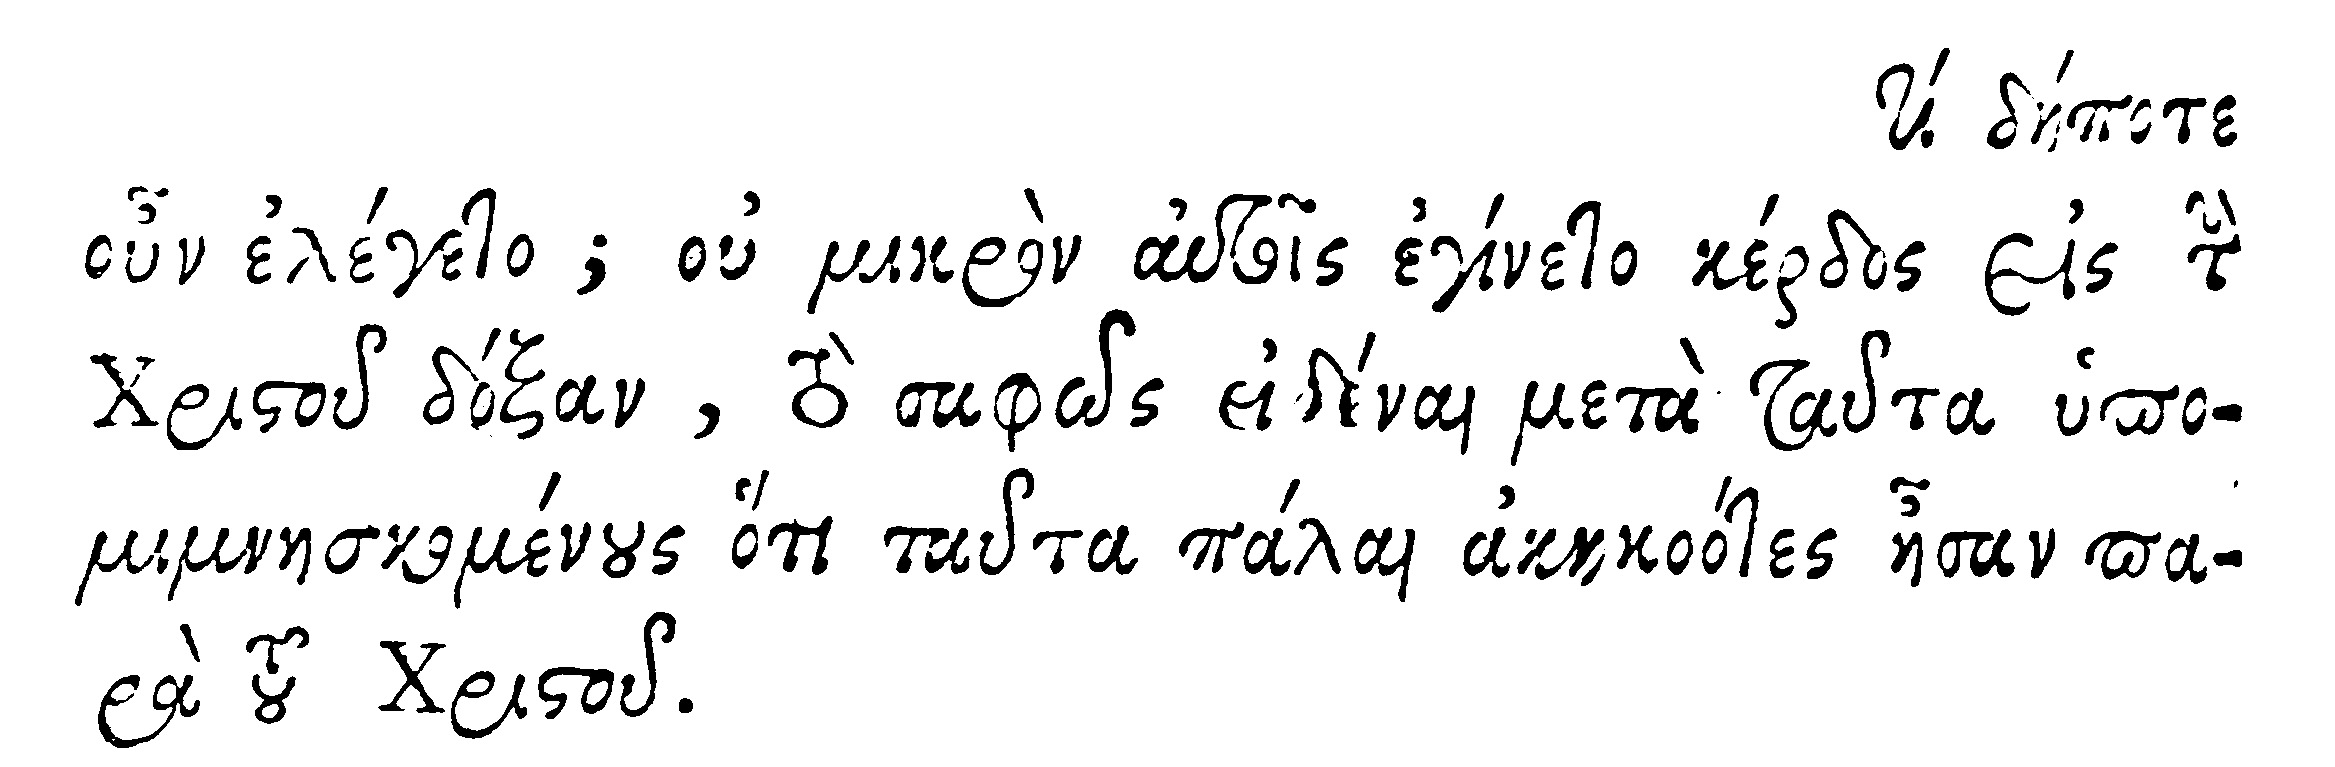 τί δήποτε
οὖν ἐλέγετο; οὐ μικρὸν αὐτοῖς ἐγίνετο κέρδος εἰς τὴν
Χριστοῦ δόξαν, τὸ σαφῶς εἰδέναι μετὰ ταῦτα ὑπο-
μιμνησκομένους ὅτι ταῦτα πάλαι ἀκηκοότες ἦσαν πα-
ρὰ τοῦ Χριστοῦ.